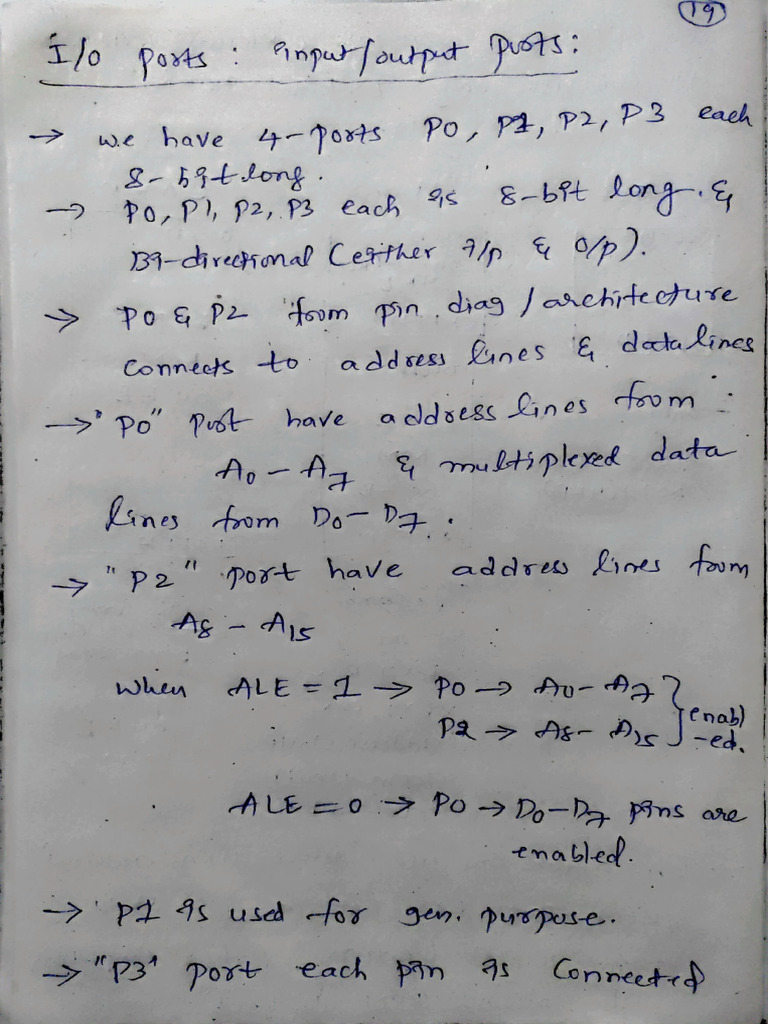 19
I/o ports : input/output ports:
→ we have 4-ports P0, P1, P2, P3 each
8-bit long.
→ P0, P1, P2, P3 each is 8-bit long. &
Bi-directional (either i/p & o/p).
→ P0 & P2 from pin diag / architecture
connects to address lines & data lines
→ "P0" port have address lines from
A0 - A7 & multiplexed data
lines from D0 - D7.
→ "P2" port have address lines from
A8 - A15
when ALE = 1 → P0 → A0 - A7 } enabl
P2 → A8 - A15 } -ed.
ALE = 0 → P0 → D0 - D7 pins are
enabled.
→ P1 is used for gen. purpose.
→ "P3" port each pin is connected